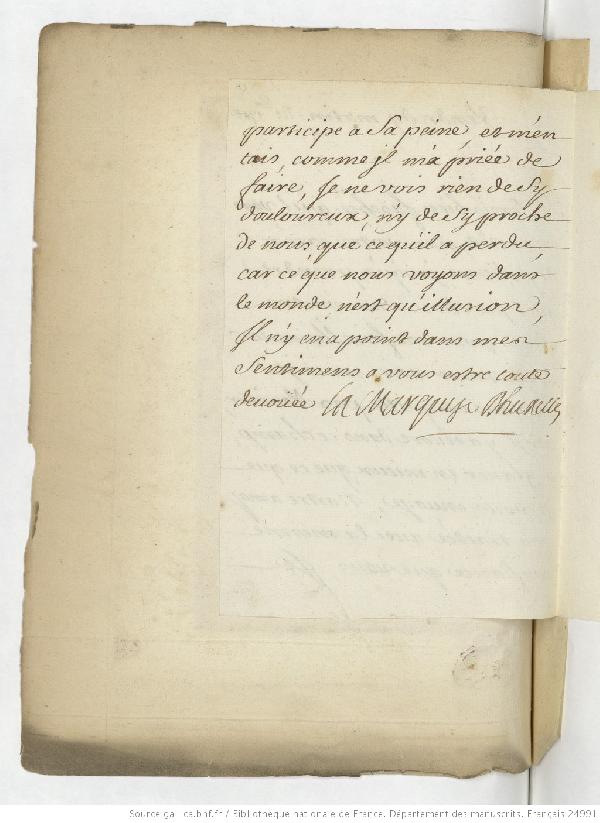 participe a sa peine, et m'en
tais, comme jl m'a priée de
faire, Je ne vois rien de sy
douloureux, n'y de sy proche
de nous, que ce qu'il a perdu,
car ce que nous voyons dans
le monde n'est qu'illusion,
Jl n'y en a point dans mes
sentimens a vous estre toute
devoüée la Marquise Dhuxelles
Source gallica.bnf.fr / Bibliothèque nationale de France. Département des manuscrits. Français 24991